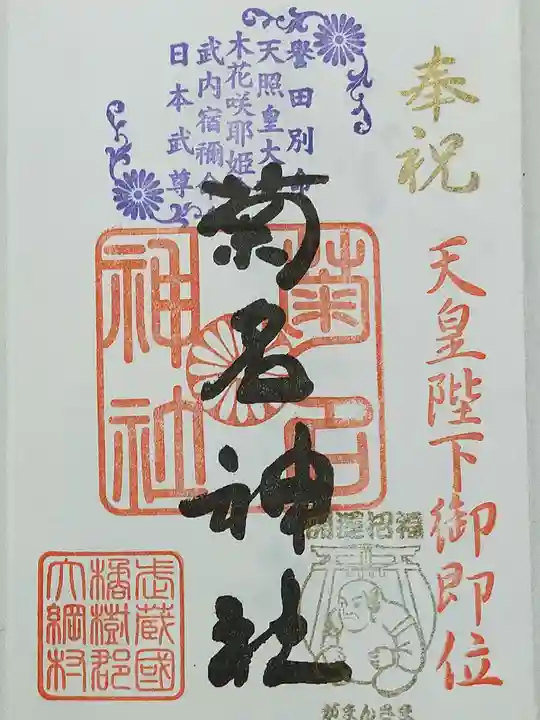 奉祝
天皇陛下御即位
誉田別命
天照皇大
木花咲耶姫
武内宿禰命
日本武尊
菊名神社
菊名
神社
福招運開
がまんさま
武蔵國
橘樹郡
大綱村